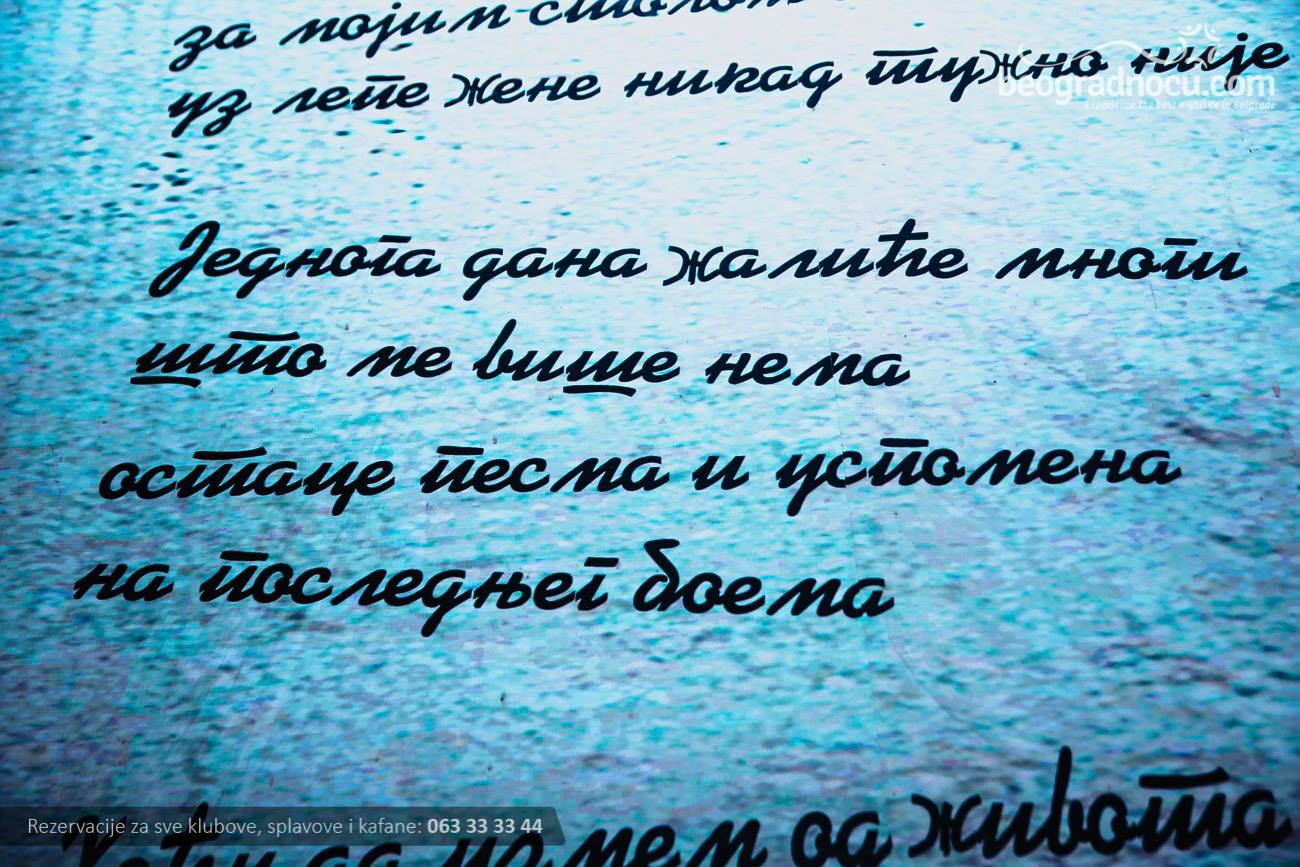 за мојим столом
уз лепе жене никад тужно није
beogradnocu.com
Experience the best nightlife in Belgrade
Једнога дана жалиће многи
што ме више нема
остаце песма и успомена
на последњег боема
од живота
Rezervacije za sve klubove, splavove i kafane: 063 33 33 44